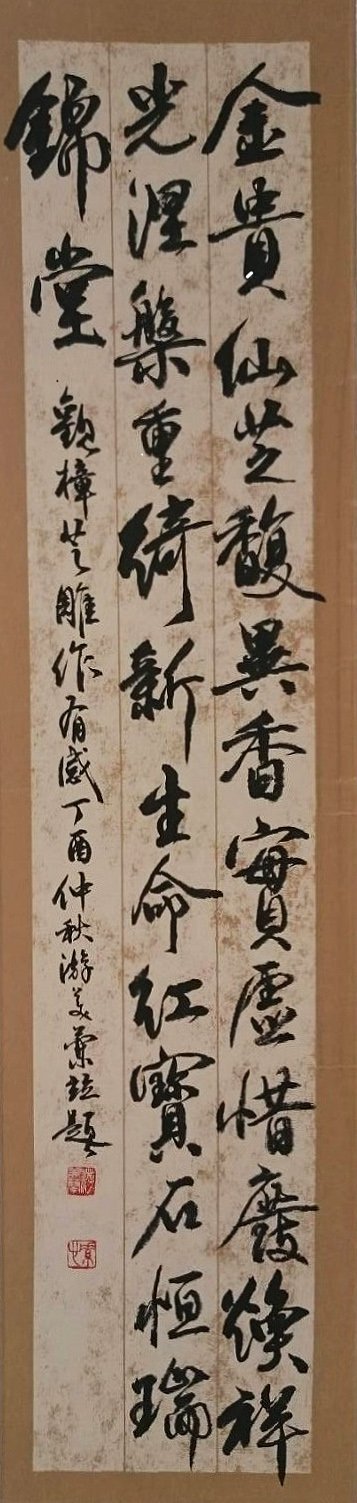 金貴仙芝馥異香實虛惜廢煥祥
光涅槃重綺新生命紅寶石恒瑞
錦堂
觀樟芝雕作有感丁酉仲秋游美蘭並題